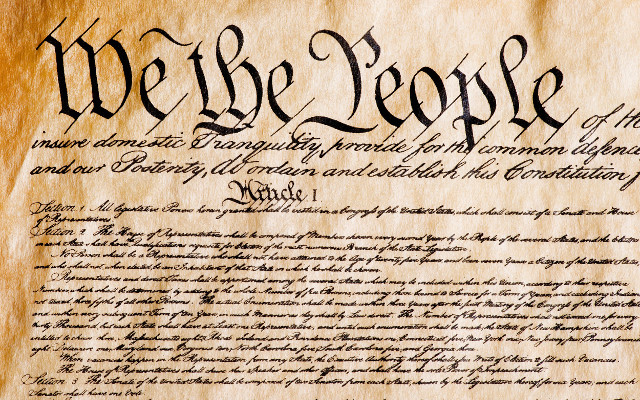 We the People of the
insure domestic Tranquility, provide for the common defence
and our Posterity, do ordain and establish this Constitution f
Article I
Section 1 All legislative Powers herein granted shall be vested in a Congress of the United States, which shall consist of a Senate and House
of Representatives.
Section 2 The House of Representatives shall be composed of Members chosen every second Year by the People of the several States, and the
in each State shall have Qualifications requisite for Electors of the most numerous Branch of the State Legislature.
No Person shall be a Representative who shall not have attained to the Age of twenty five Years and been seven Years a Citizen of the United States,
and who shall not, when elected, be an Inhabitant of that State in which he shall be chosen.
Representatives and direct Taxes shall be apportioned among the several States which may be included within this Union, according to their respective
Numbers, which shall be determined by adding to the whole Number of free Persons, including those bound to Service for a Term of Years, and excluding Indians
not taxed, three fifths of all other Persons. The actual Enumeration shall be made within three Years after the first Meeting of the Congress of the United States
and within every subsequent Term of ten Years, in such Manner as they shall by Law direct. The Number of Representatives shall not exceed one for every
thirty Thousand, but each State shall have at Least one Representative, and until such enumeration shall be made, the State of New Hampshire shall be
When vacancies happen in the Representation from any State, the Executive Authority thereof shall issue Writs of Election to fill such Vacancies.
The House of Representatives shall chuse their Speaker and other Officers, and shall have the sole Power of Impeachment.
Section 3 The Senate of the United States shall be composed of two Senators from each State, chosen by the Legislature thereof, for six Years, and each
Senator shall have one Vote.